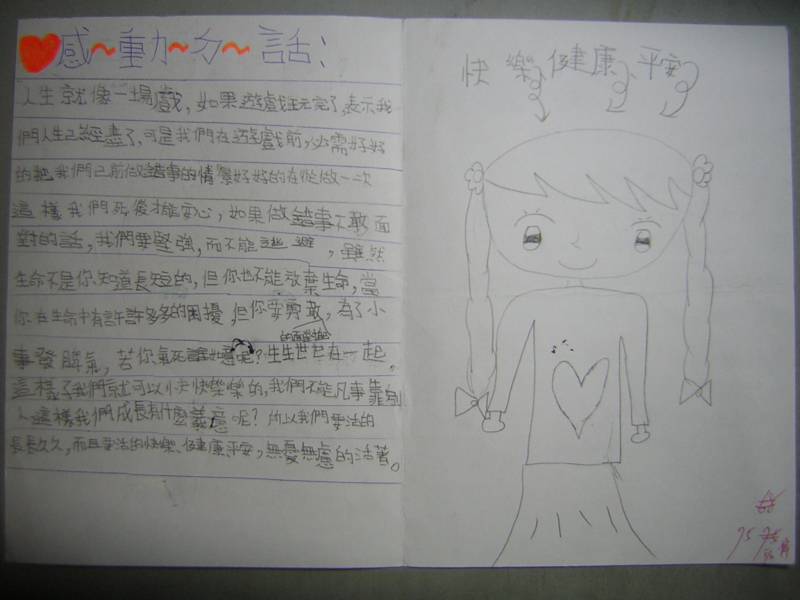 感~重力~ㄉ~話:
人生就像一場戲,如果遊戲玩完了,表示我
們人生已經盡了,可是我們在遊戲前,必需好好
的把我們已前做錯事的情景好好的在從做一次
這樣我們死後才能安心,如果做錯事不敢面
對的話,我們要堅強,而不能逃避,雖然
生命不是你知道長短的,但你也不能放棄生命,當
你在生命中有許許多多的困擾,但你要勇敢,為了小
的面對他
事發脾氣,若你氣死誰如意呢?生生世世在一起。
這樣子我們就可以快快樂樂的,我們不能凡事靠別
人這樣我們成長有什麼義意呢?所以我們要活的
長長久久,而且要活的快樂、健康平安,無憂無慮的活著。
快樂、健康、平安
75